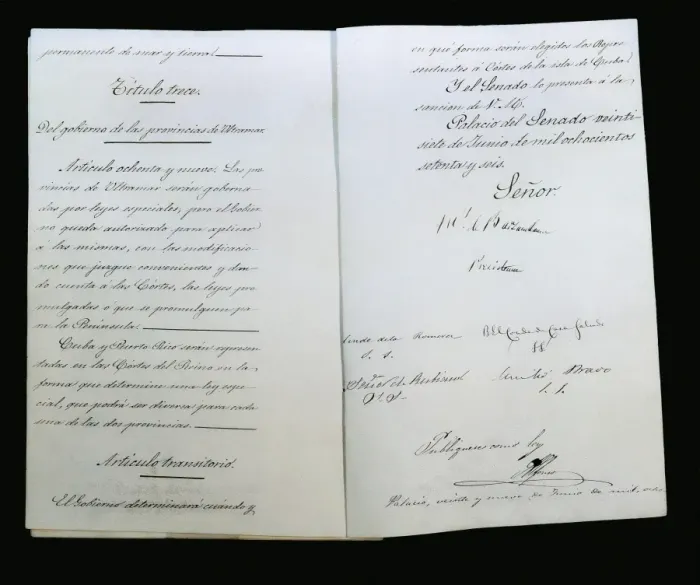 permanente de mar y tierra.
Título trece.
Del gobierno de las provincias de Ultramar.
Artículo ochenta y nueve. Las pro
vincias de Ultramar serán goberna
das por leyes especiales, pero el Gobier
no queda autorizado para aplicar
á las mismas, con las modificacio
nes que juzgue convenientes y dan
do cuenta á las Córtes, las leyes pro
mulgadas ó que se promulguen pa
ra la Península.
Cuba y Puerto Rico serán represen
tadas en las Córtes del Reino en la
forma que determine una ley espe
cial, que podrá ser diversa para cada
una de las dos provincias.
Artículo transitorio.
El Gobierno determinará cuándo y
en qué forma serán elegidos los Repre
sentantes á Córtes de la isla de Cuba.
Y el Senado lo presenta á la
sancion de V. M.
Palacio del Senado veinti
siete de Junio de mil ochocientos
setenta y seis.
Señor.
Presidente
S. S.
Señor de Rubianes
Bravo
S. S.
Publíquese como ley
Alfonso
Palacio, veinte y nueve de Junio de mil